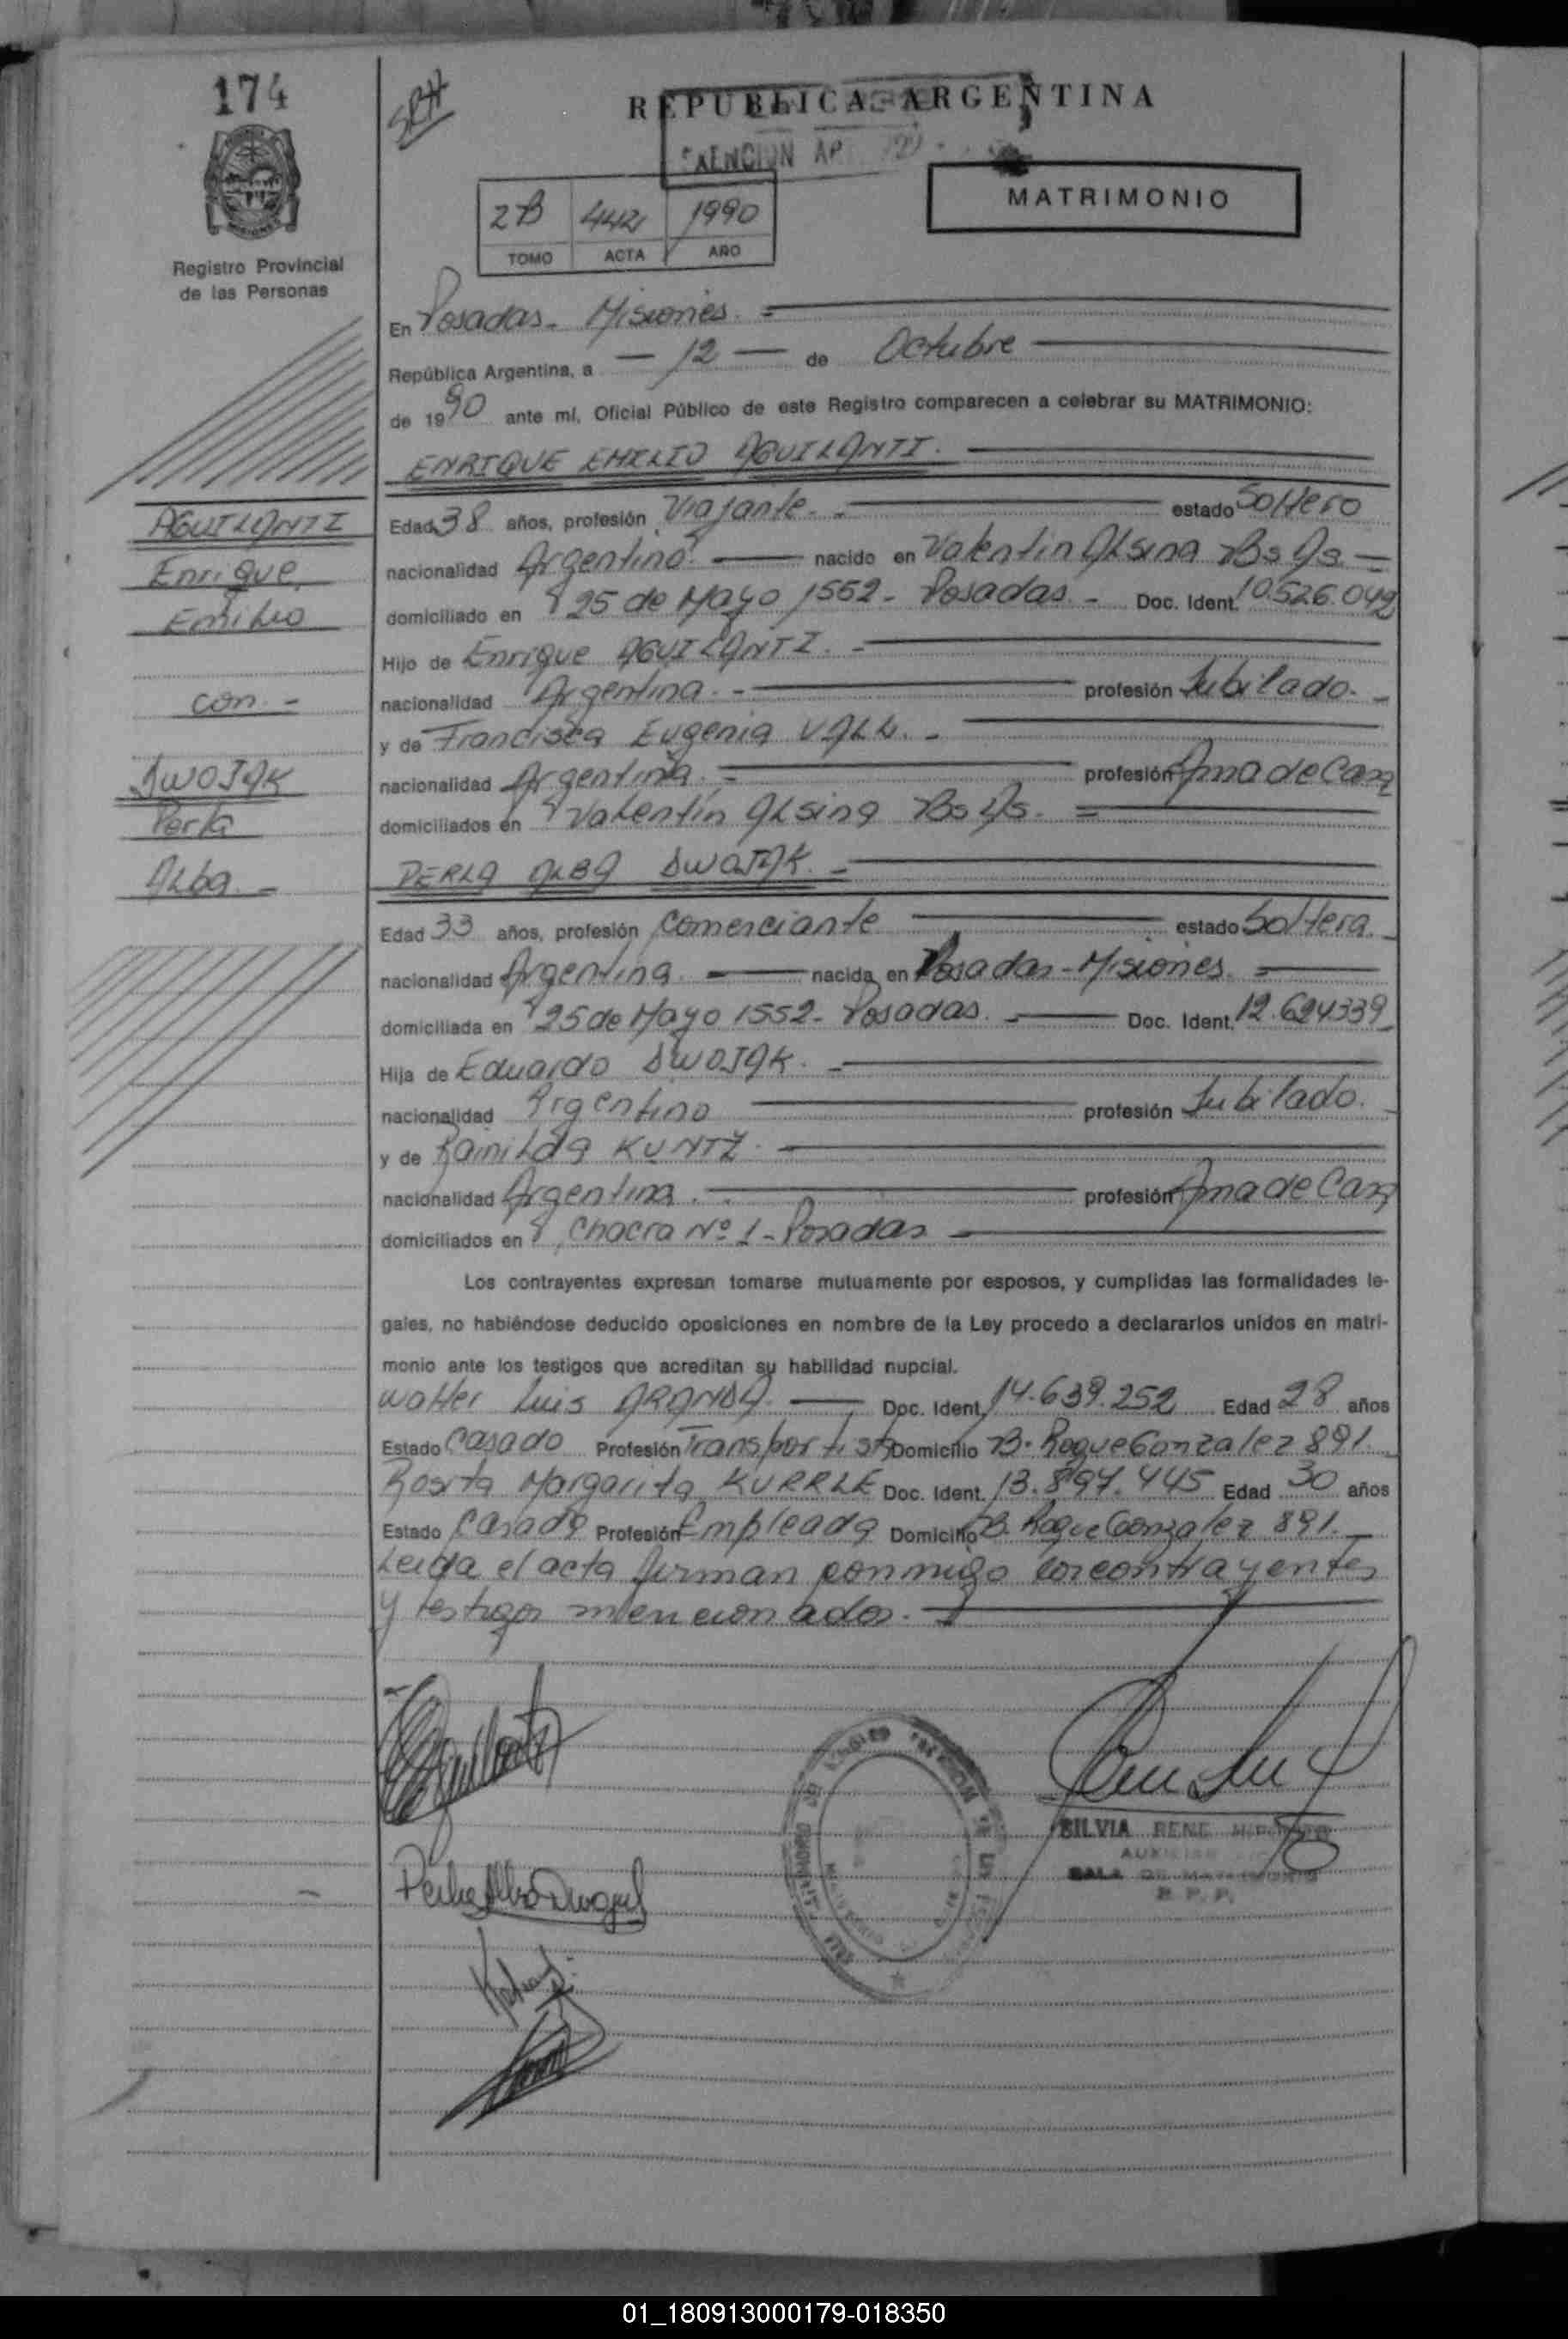 174
SRH
REPUBLICA ARGENTINA
EXENCION
MATRIMONIO
2B 442 1990
TOMO ACTA AÑO
Registro Provincial
de las Personas
En Posadas - Misiones. =
República Argentina, a — 12 — de Octubre
de 1990 ante mí, Oficial Público de este Registro comparecen a celebrar su MATRIMONIO:
ENRIQUE EMILIO AGUILANTI.
AGUILANTI
Enrique
Emilio
con. -
DWOJAK
Perla
Alba. -
Edad 38 años, profesión Viajante. - estado Soltero
nacionalidad Argentino. — nacido en Valentin Alsina Bs As. =
domiciliado en 25 de Mayo 1552 - Posadas. - Doc. Ident. 10.526.042
Hijo de Enrique AGUILANTI. -
nacionalidad Argentina. - profesión Jubilado. -
y de Francisca Eugenia VALL. -
nacionalidad Argentina. - profesión Ama de Casa
domiciliados en Valentín Alsina Bs As. =
PERLA ALBA DWOJAK. -
Edad 33 años, profesión Comerciante estado Soltera. -
nacionalidad Argentina. — nacida en Posadas - Misiones. =
domiciliada en 25 de Mayo 1552 - Posadas. — Doc. Ident. 12.624339
Hija de Eduardo DWOJAK. -
nacionalidad Argentino profesión Jubilado. -
y de Rainilda KUNTZ. -
nacionalidad Argentina. profesión Ama de Casa
domiciliados en Chacra Nº 1 - Posadas -
Los contrayentes expresan tomarse mutuamente por esposos, y cumplidas las formalidades le-
gales, no habiéndose deducido oposiciones en nombre de la Ley procedo a declararlos unidos en matri-
monio ante los testigos que acreditan su habilidad nupcial.
Walter Luis ARANDA. — Doc. Ident. 14.639.252 Edad 28 años
Estado Casado Profesión Transportista Domicilio B. Roque Gonzalez 891.
Rosita Margarita KURRLE Doc. Ident. 13.897.445 Edad 30 años
Estado Casada Profesión Empleada Domicilio B. Roque Gonzalez 891. -
Leida el acta firman conmigo los contrayentes
y testigos mencionados. -
Perla Alba Dwojak
SILVIA RENE
AUXILIAR
SALA DE MATRIMONIO
R. P. P.
01_180913000179-018350